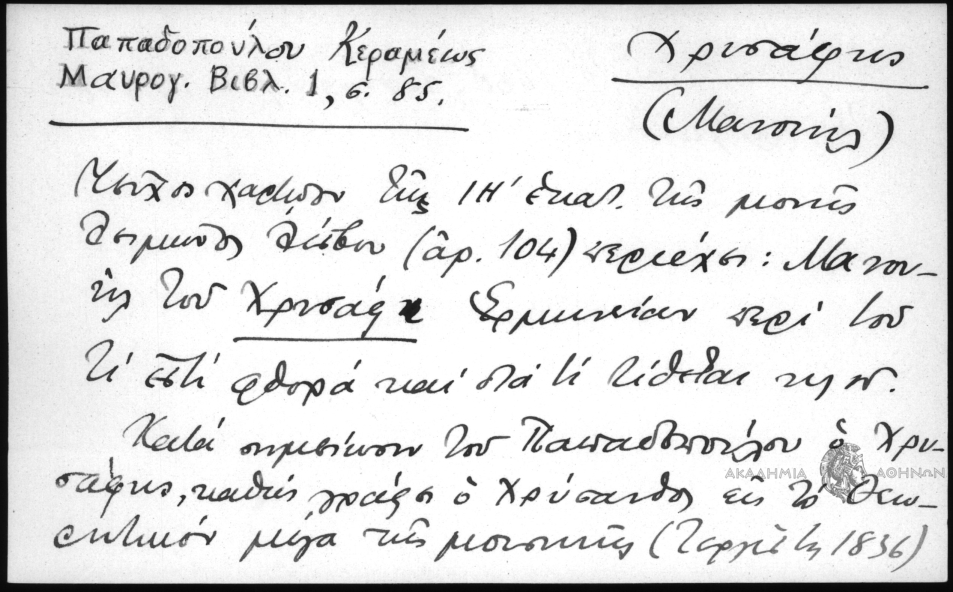 Παπαδοπούλου Κεραμέως
Μαυρογ. Βιβλ. 1, σ. 85.
Χρυσάφης
(Μανουήλ)
Τεῦχος χαρτῷον τῆς ΙΗ' ἑκατ. τῆς μονῆς
Λειμῶνος Λέσβου (ἀρ. 104) περιέχει: Μανου-
ὴλ τοῦ Χρυσάφη Ἑρμηνείαν περὶ τοῦ
τί ἐστί φθορά καί διά τί τίθεται κλπ.
Κατά σημείωσιν τοῦ Παπαδοπούλου ὁ Χρυ-
σάφης, καθώς γράφει ὁ Χρύσανθος εἰς τό Θεω-
ρητικόν μέγα τῆς μουσικῆς (Τεργέστη 1836)
ΑΚΑΔΗΜΙΑ ΑΘΗΝΩΝ